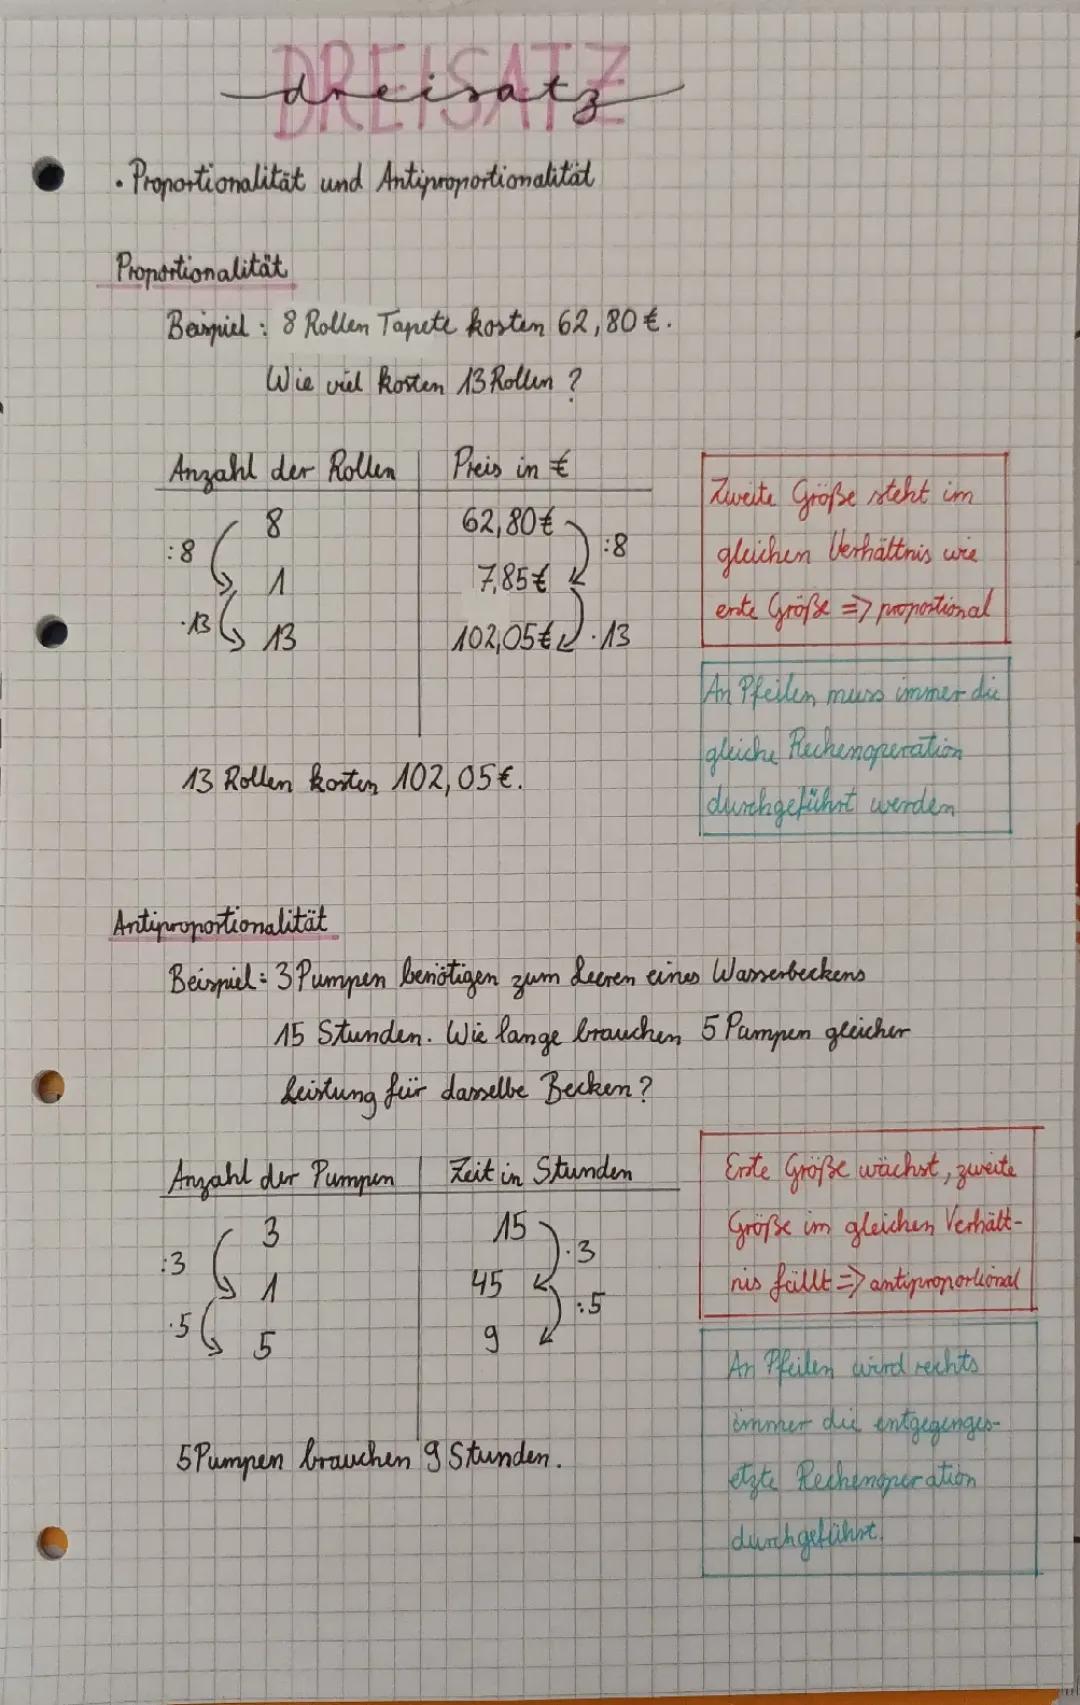 DREISATZ
dreisatz
• Proportionalität und Antiproportionalität
Proportionalität
Beispiel : 8 Rollen Tapete kosten 62,80 €.
Wie viel kosten 13 Rollen ?
Anzahl der Rollen | Preis in €
8 62,80€
:8 :8
1 7,85€
·13 ·13
13 102,05€
13 Rollen kosten 102,05€.
Zweite Größe steht im
gleichen Verhältnis wie
erste Größe => proportional
An Pfeilen muss immer die
gleiche Rechenoperation
durchgeführt werden
Antiproportionalität
Beispiel: 3 Pumpen benötigen zum Leeren eines Wasserbeckens
15 Stunden. Wie lange brauchen 5 Pumpen gleicher
Leistung für dasselbe Becken?
Anzahl der Pumpen | Zeit in Stunden
3 15
:3 ·3
1 45
·5 :5
5 9
5 Pumpen brauchen 9 Stunden.
Erste Größe wächst, zweite
Größe im gleichen Verhält-
nis fällt => antiproportional
An Pfeilen wird rechts
immer die entgegenges-
etzte Rechenoperation
durchgeführt.